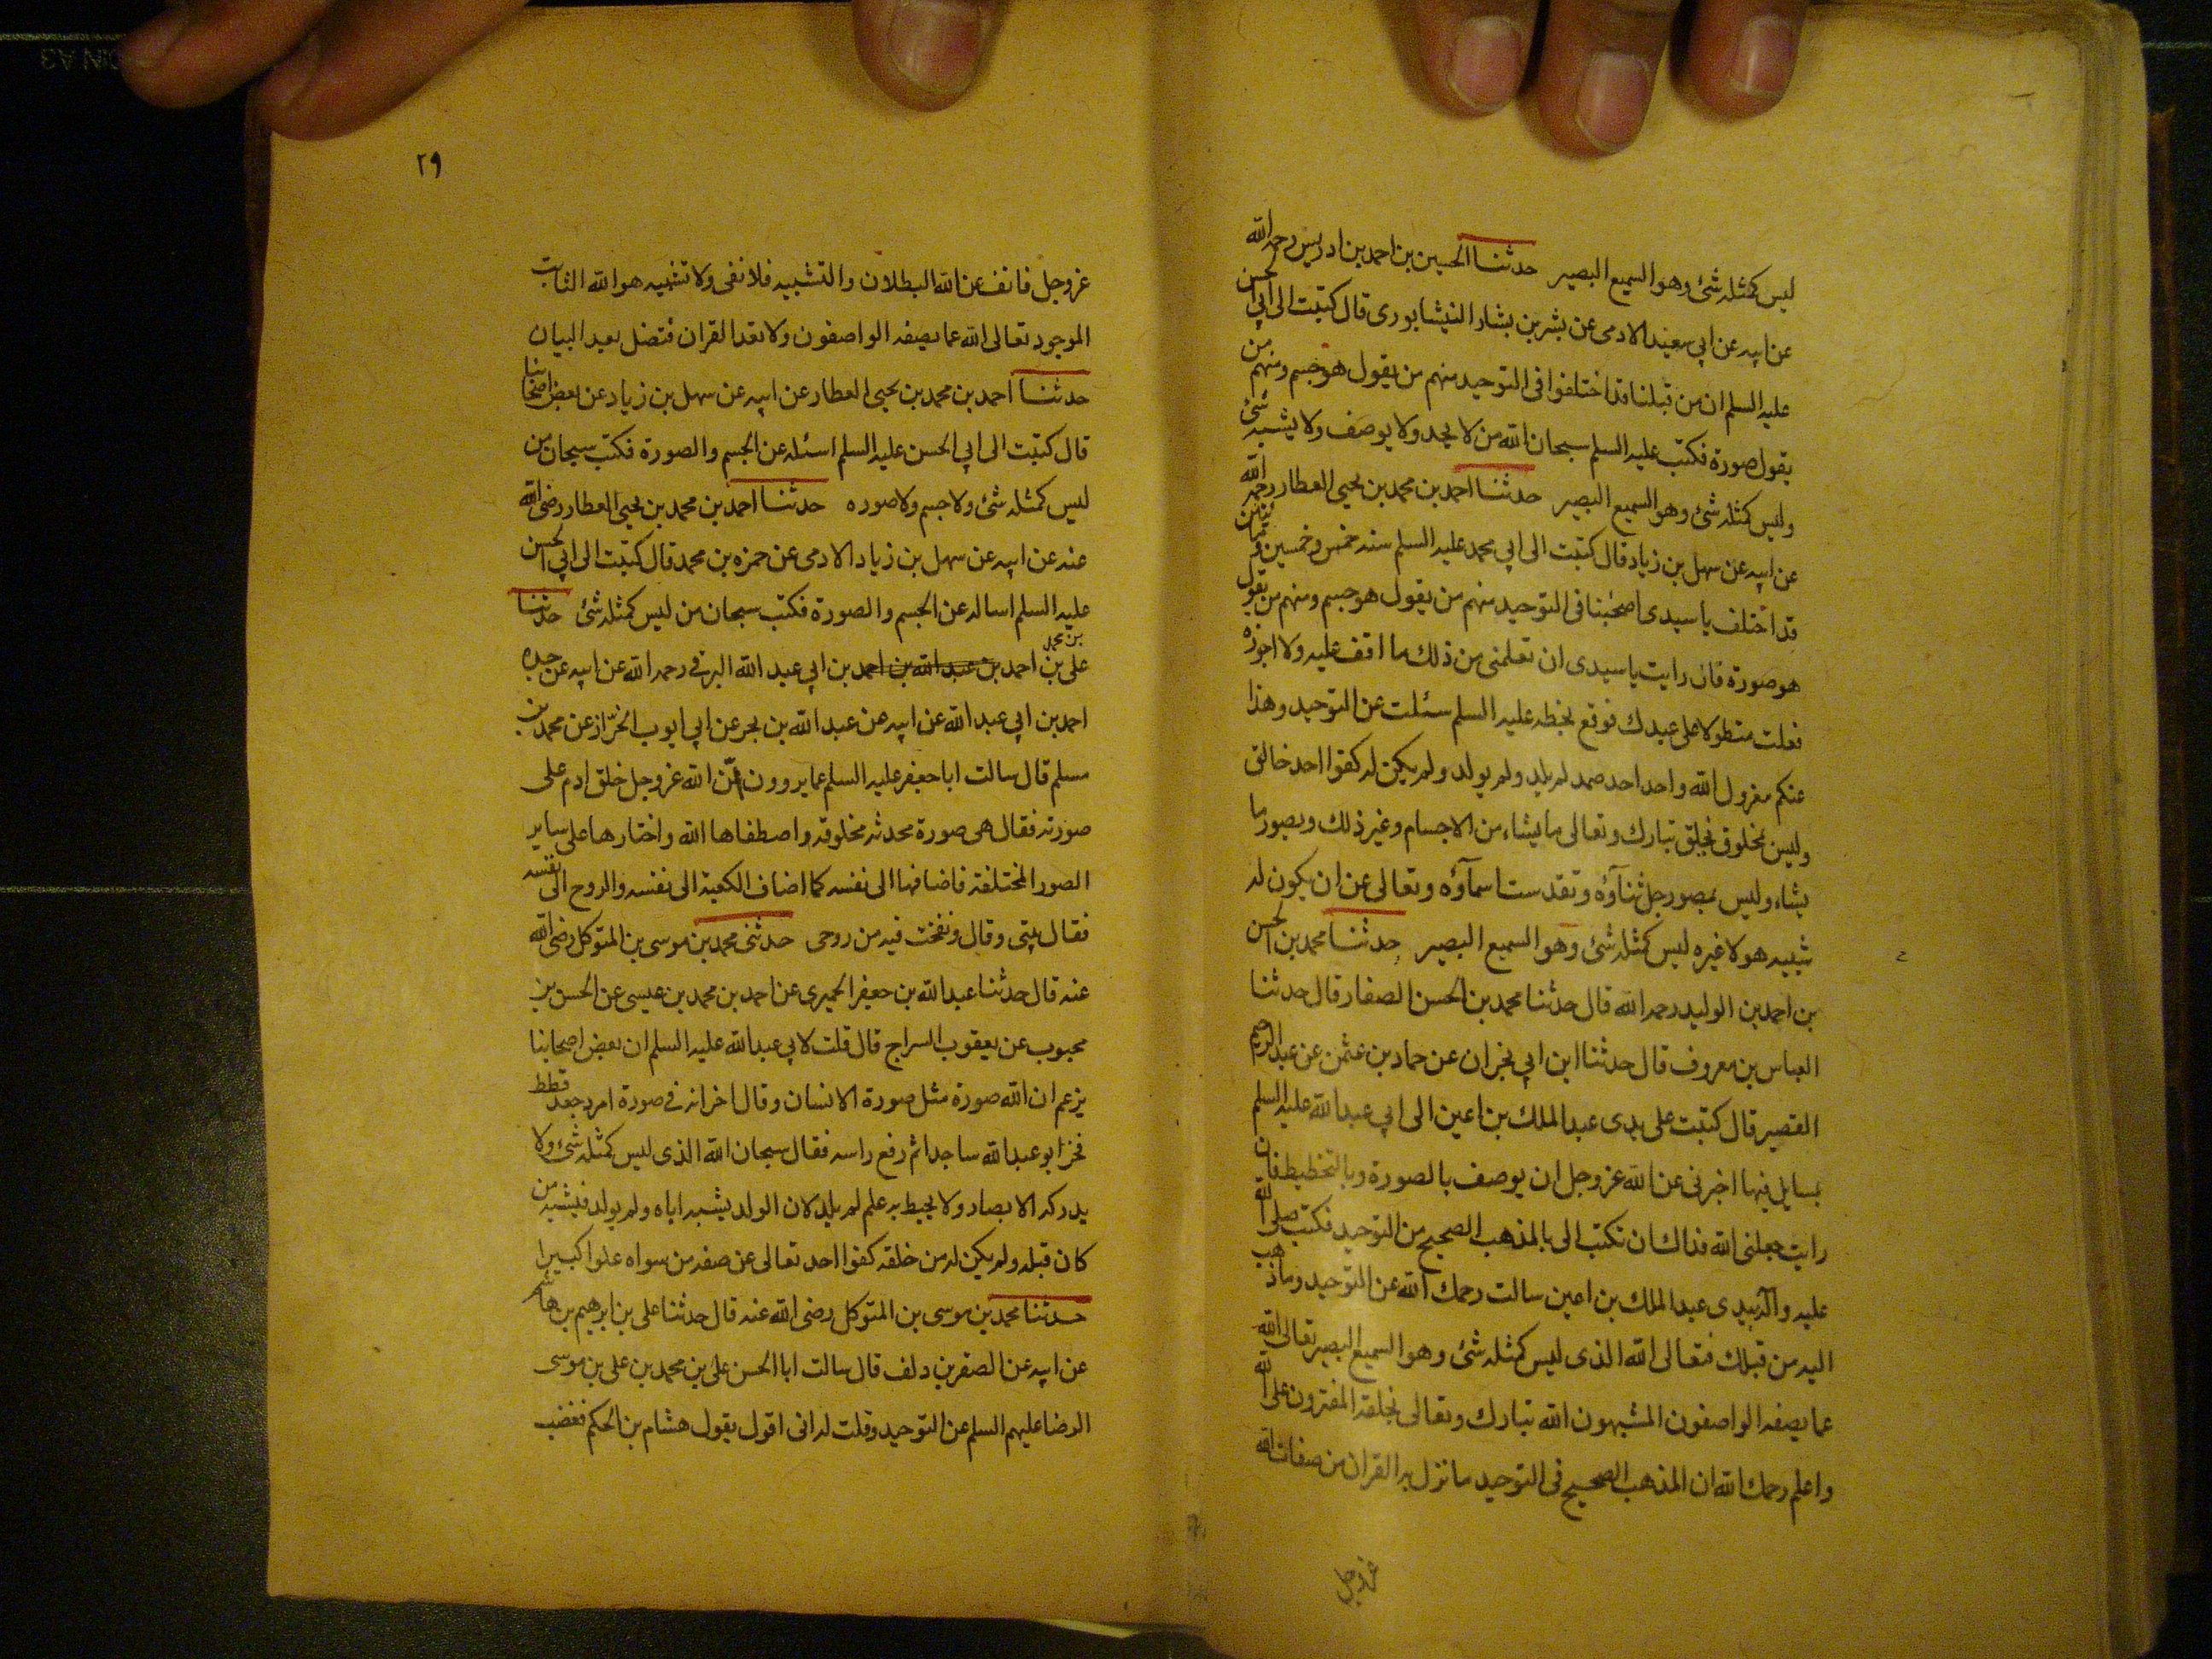 ليس كمثله شئ وهو السميع البصير حدثنا الحسين بن احمد بن ادريس رحمه الله
عن ابيه عن ابي سعيد الادمى عن بشر بن بشار النيشابورى قال كتبت الى ابي الحسن
عليه السلم ان من قبلنا قد اختلفوا فى التوحيد منهم من يقول هو جسم ومنهم من
يقول صورة فكتب عليه السلم سبحان الله من لا يحد ولا يوصف ولا يشبهه شئ
وليس كمثله شئ وهو السميع البصير حدثنا احمد بن محمد بن يحيى العطار رحمه الله
عن ابيه عن سهل بن زياد قال كتبت الى ابي محمد عليه السلم سنه خمس وخمسين ومأتين
قد اختلف يا سيدى اصحبنا فى التوحيد منهم من يقول هو جسم ومنهم من يقول
هو صورة فان رايت يا سيدى ان تعلمنى من ذلك ما اقف عليه ولا اجوزه
فعلت متطولا على عبدك فوقع بخطه عليه السلم سئلت عن التوحيد وهذا
عنكم معزول الله واحد احد صمد لم يلد ولم يولد ولم يكن له كفوا احد خالق
وليس بمخلوق يخلق تبارك وتعالى ما يشاء من الاجسام وغير ذلك ويصور ما
يشاء وليس بمصور جل ثنآؤه وتقدست اسمآؤه وتعالى عن ان يكون له
شبيه هو لا غيره ليس كمثله شئ وهو السميع البصير حدثنا محمد بن الحسن
بن احمد بن الوليد رحمه الله قال حدثنا محمد بن الحسن الصفار قال حدثنا
العباس بن معروف قال حدثنا ابن ابي نجران عن حماد بن عثمن عن عبد الرحيم
القصير قال كتبت على يدى عبد الملك بن اعين الى ابي عبد الله عليه السلم
بسايل فيها اخبرنى عن الله عز وجل ان يوصف بالصورة وبالتخطيط فان
رايت جعلنى الله فداك ان تكتب الى بالمذهب الصحيح من التوحيد فكتب صلى الله
عليه وآله بيدى عبد الملك بن اعين سالت رحمك الله عن التوحيد وما ذهب
اليه من قبلك فتعالى الله الذى ليس كمثله شئ وهو السميع البصير تعالى الله
عما يصفه الواصفون المشبهون الله تبارك وتعالى بخلقه المفترون على الله
واعلم رحمك الله ان المذهب الصحيح فى التوحيد ما نزل به القران من صفات الله
عز وجل
٢٩
عز وجل فانف عن الله البطلان والتشبيه فلا نفى ولا تشبيه هو الله الثابت
الموجود تعالى الله عما يصفه الواصفون ولا تعد القران فتضل بعد البيان
حدثنا احمد بن محمد بن يحيى العطار عن ابيه عن سهل بن زياد عن بعض اصحابنا
قال كتبت الى ابي الحسن عليه السلم اسئله عن الجسم والصورة فكتب سبحان من
ليس كمثله شئ ولا جسم ولا صوره حدثنا احمد بن محمد بن يحيى العطار رضى الله
عنه عن ابيه عن سهل بن زياد الادمى عن حمزه بن محمد قال كتبت الى ابي الحسن
عليه السلم اساله عن الجسم والصورة فكتب سبحان من ليس كمثله شئ حدثنا
بن محمد
على بن احمد بن عبد الله بن احمد بن ابي عبد الله البرقى رحمه الله عن ابيه عن جده
احمد بن ابي عبد الله عن ابيه عن عبد الله بن بحر عن ابي ايوب الخزاز عن محمد بن
مسلم قال سالت ابا جعفر عليه السلم عما يروون ان الله عز وجل خلق ادم على
صورته فقال هى صورة محدثه مخلوقه واصطفاها الله واختارها على ساير
الصور المختلفة فاضافها الى نفسه كما اضاف الكعبة الى نفسه والروح الى نفسه
فقال بيتى وقال ونفخت فيه من روحى حدثنى محمد بن موسى بن المتوكل رضى الله
عنه قال حدثنا عبد الله بن جعفر الحميرى عن احمد بن محمد بن عيسى عن الحسن بن
محبوب عن يعقوب السراج قال قلت لابي عبد الله عليه السلم ان بعض اصحابنا
يزعم ان الله صورة مثل صورة الانسان وقال اخر انه فى صورة امرد جعد قطط
فخر ابو عبد الله ساجدا ثم رفع راسه فقال سبحان الله الذى ليس كمثله شئ ولا
يدركه الابصار ولا يحيط به علم لم يلد لان الولد يشبه اباه ولم يولد فيشبه من
كان قبله ولم يكن له من خلقه كفوا احد تعالى عن صفه من سواه علوا كبيرا
حدثنا محمد بن موسى بن المتوكل رضى الله عنه قال حدثنا على بن ابرهيم بن هاشم
عن ابيه عن الصقر بن دلف قال سالت ابا الحسن على بن محمد بن على بن موسى
الرضا عليهم السلم عن التوحيد وقلت له انى اقول بقول هشام بن الحكم فغضب